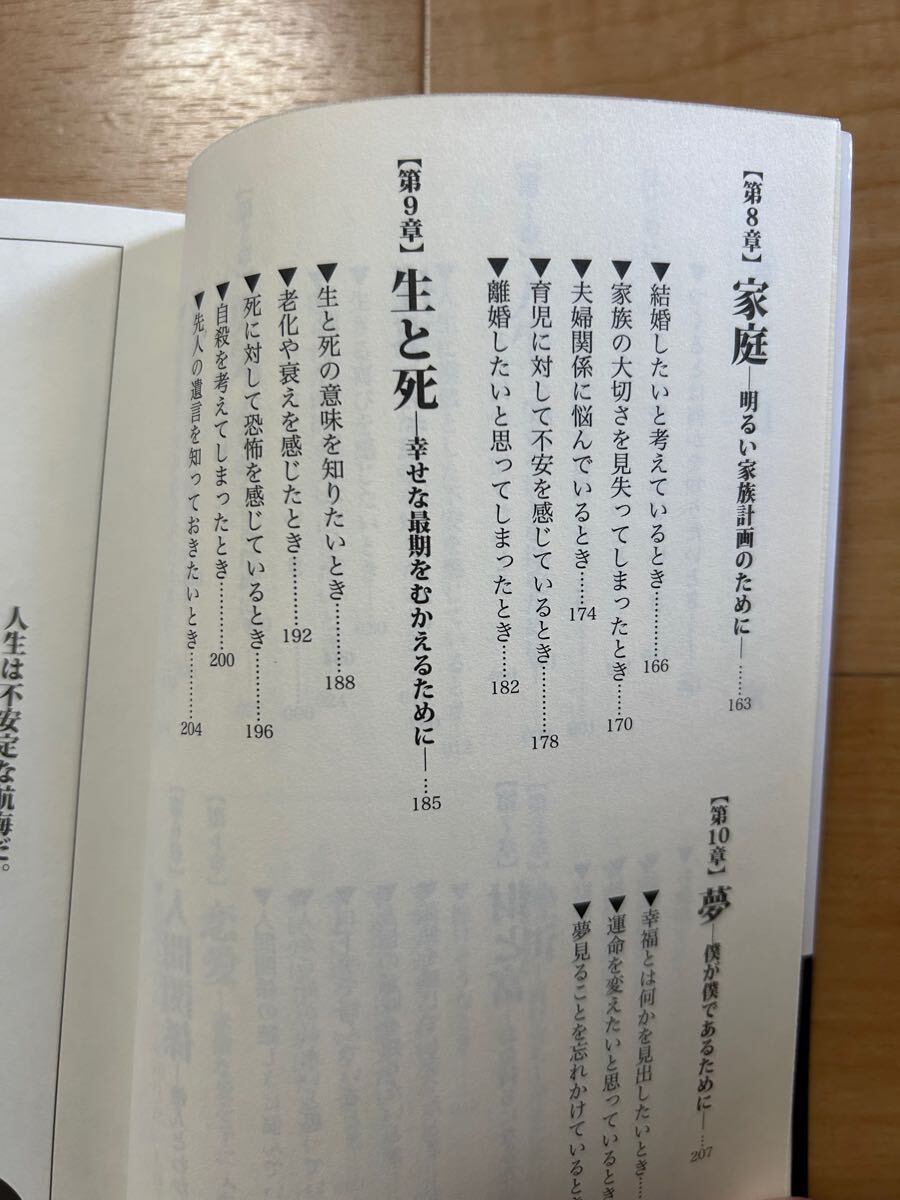 【第8章】家庭―明るい家族計画のために―……163
▼結婚したいと考えているとき…………166
▼家族の大切さを見失ってしまったとき……170
▼夫婦関係に悩んでいるとき……174
▼育児に対して不安を感じているとき………178
▼離婚したいと思ってしまったとき……182
【第9章】生と死―幸せな最期をむかえるために―…185
▼生と死の意味を知りたいとき………188
▼老化や衰えを感じたとき…………192
▼死に対して恐怖を感じているとき…………196
▼自殺を考えてしまったとき………200
▼先人の遺言を知っておきたいとき………204
【第10章】夢―僕が僕であるために―……207
▼幸福とは何かを見出したいとき……
▼運命を変えたいと思っているとき
▼夢見ることを忘れかけていると
人生は不安定な航海だ。